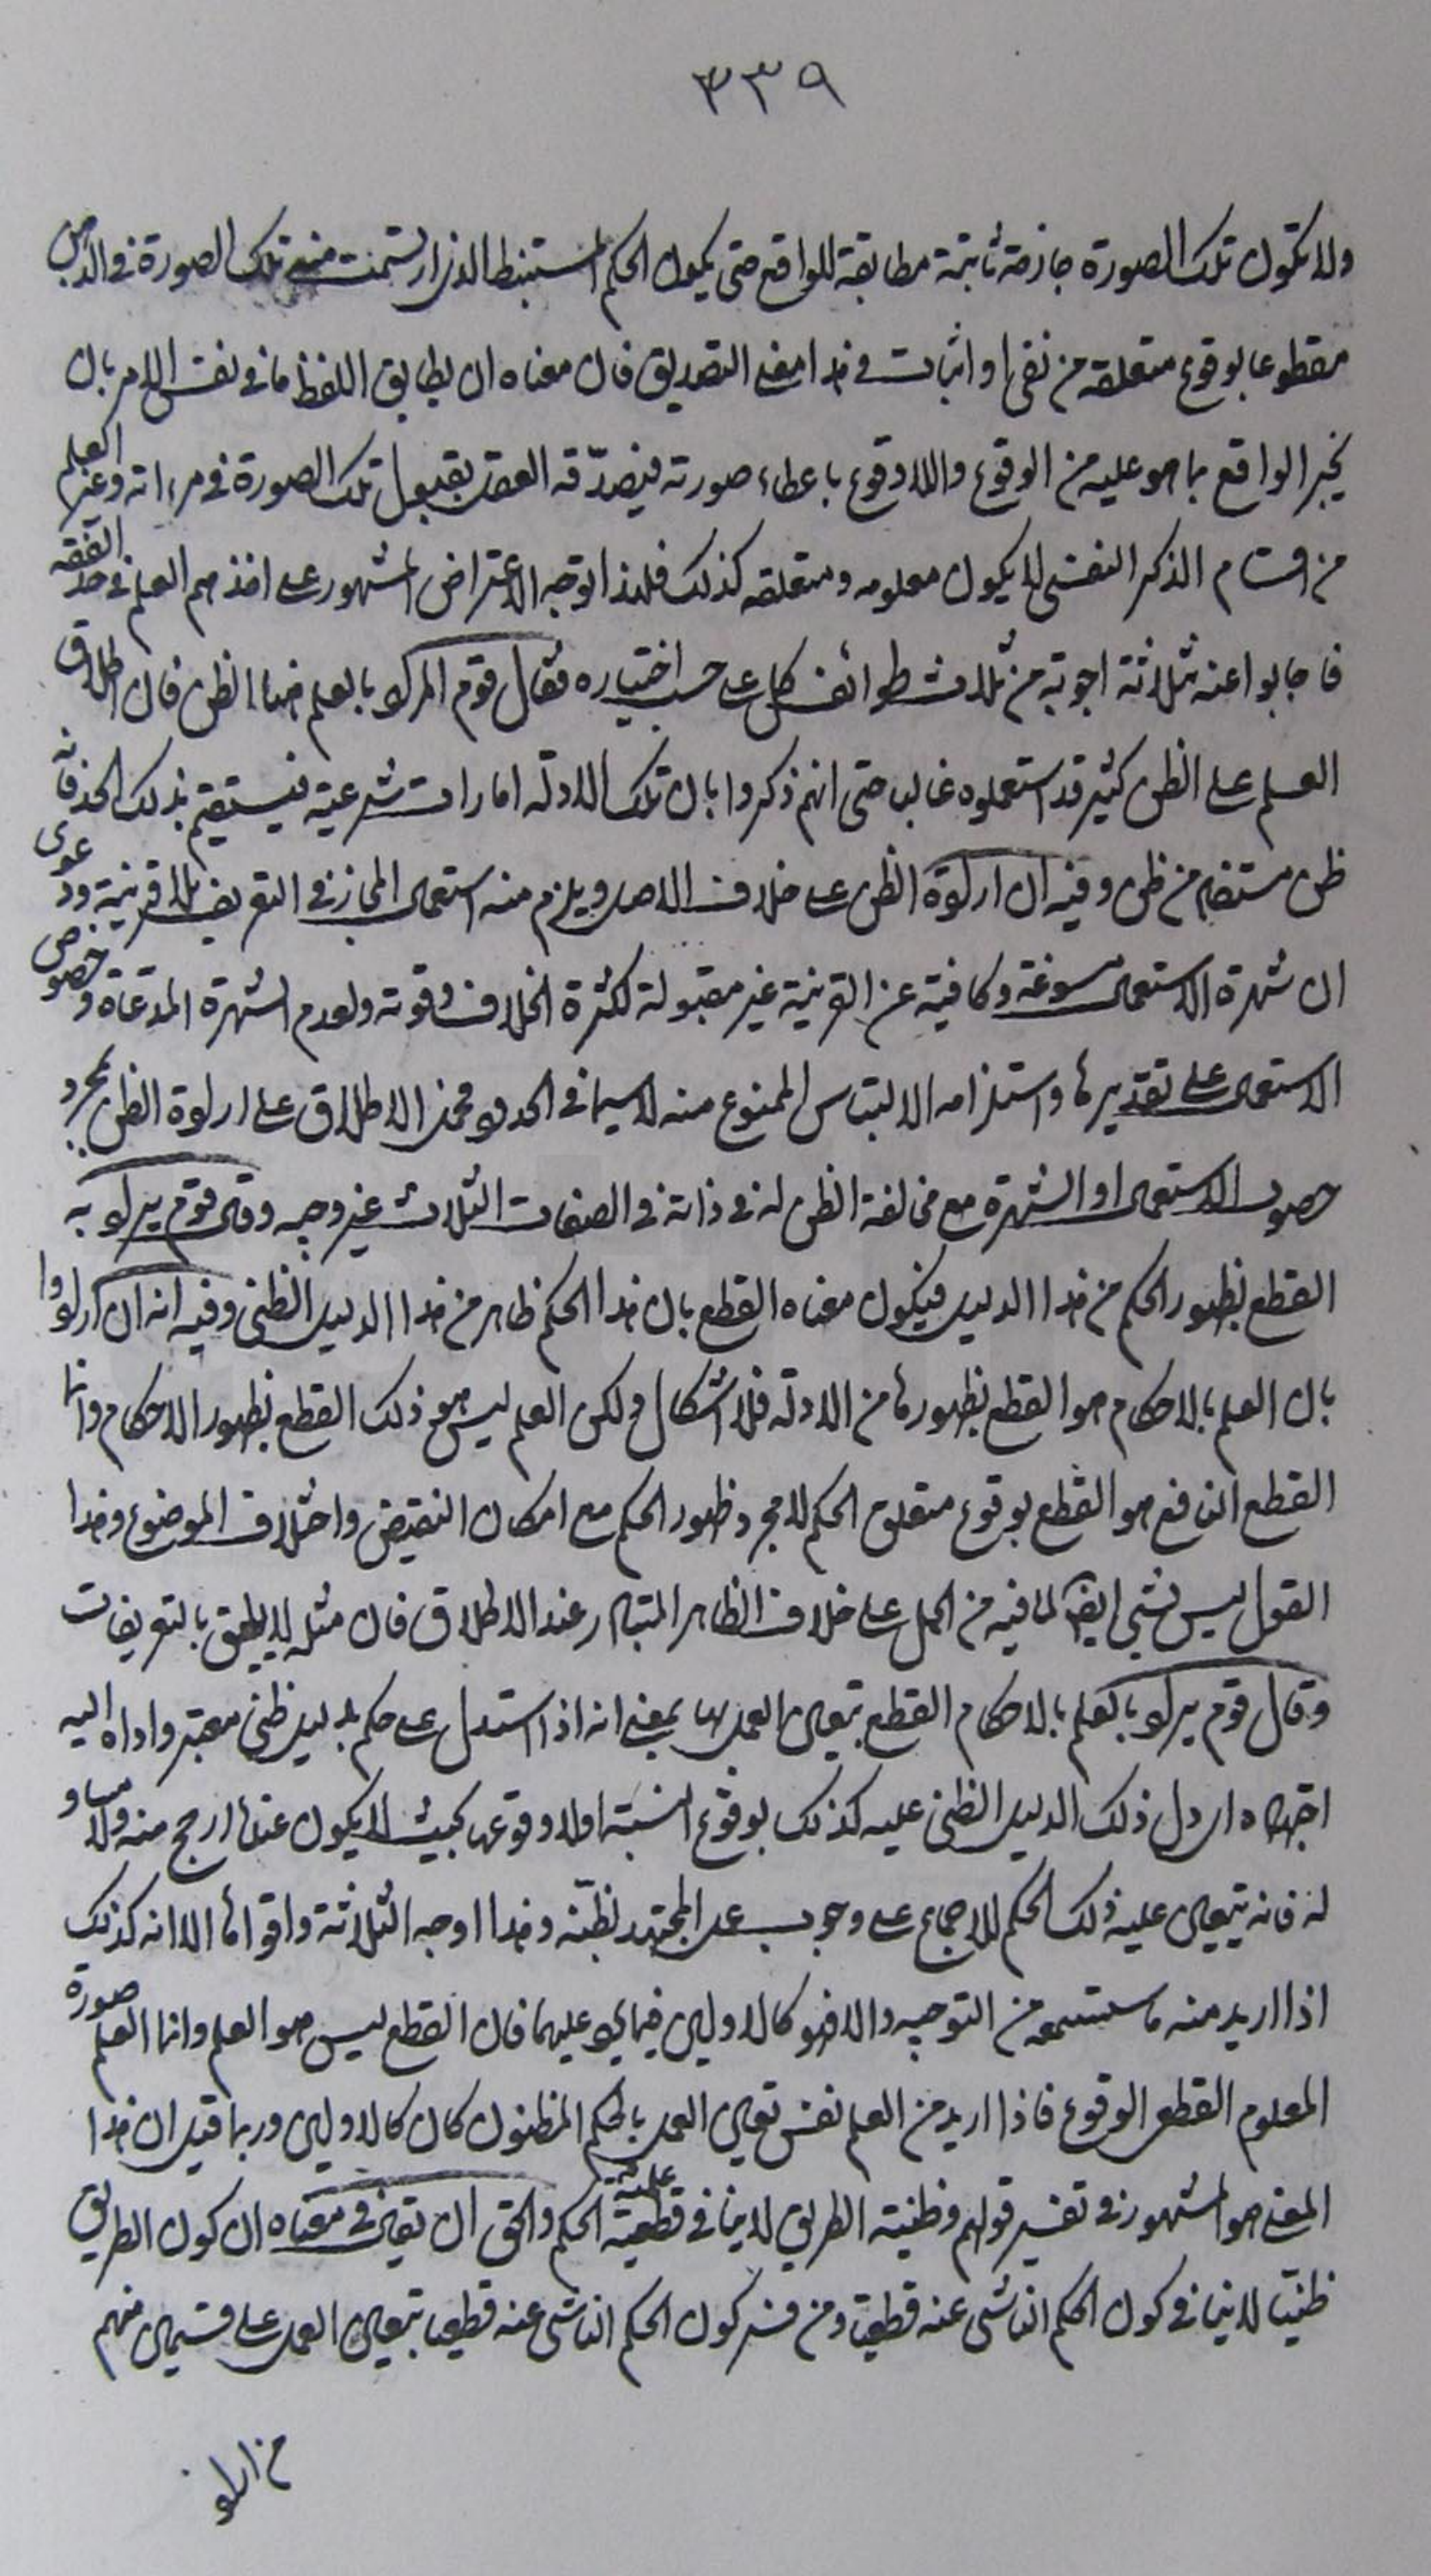 ٣٣٩
ولا تكون تلك الصورة جازمة ثابتة مطابقة للواقع حتى يكون الحكم المستنبط الذى ارتسمت منه تلك الصورة فى الذهن
مقطوعا بوقوع متعلقه من نفى او اثبات وهذا معنى التصديق فان معناه ان يطابق اللفظ ما فى نفس الامر بان
يخبر الواقع بما هو عليه من الوقوع واللاوقوع باعطاء صورته فيصدّقه العقل بقبول تلك الصورة فى مرءاته وغير العلم
من اقسام الذكر النفسى لا يكون معلومه ومتعلقه كذلك فلهذا توجه الاعتراض المشهور على اخذهم العلم فى حد الفقه
فاجابوا عنه بثلاثة اجوبة من ثلاث طوائف كل على حسب اختياره فقال قوم المراد بالعلم هنا الظن فان اطلاق
العلم على الظن كثير قد استعملوه غالبا حتى انهم ذكروا بان تلك الادلة امارات شرعية فيستقيم بذلك الحد فانه
ظن مستفاد من ظن وفيه ان ارادة الظن على خلاف الاصل ويلزم منه استعمال المجاز فى التعريف بلا قرينة ودعوى
ان شهرة الاستعمال مسوغة وكافية عن القرينة غير مقبولة لكثرة الخلاف وقوته ولعدم الشهرة المدّعاة وخصوص
الاستعمال على تقديرها واستلزامه الالتباس الممنوع منه لا سيما فى الحدود فحمل الاطلاق على ارادة الظن بمجرد
حصول الاستعمال او الشهرة مع مخالفة الظن له فى ذاته فى الصفات الثلاث غير وجيه وقال قوم يراد به
القطع بظهور الحكم من هذا الدليل فيكون معناه القطع بان هذا الحكم ظاهر من هذا الدليل الظنى وفيه انه ان ارادوا
بان العلم بالاحكام هو القطع بظهورها من الادلة فلا اشكال ولكن العلم ليس هو ذلك القطع بظهور الاحكام وانما
القطع النافع هو القطع بوقوع متعلق الحكم لا مجرد ظهور الحكم مع امكان النقيض واختلاف الموضوع وهذا
القول ليس بشىء ايضا لما فيه من الحمل على خلاف الظاهر المتبادر عند الاطلاق فان مثله لا يليق بالتعريفات
وقال قوم يراد بالعلم بالاحكام القطع بتعين العمل بها بمعنى انه اذا استدل على حكم بدليل ظنى معتبر واداه اليه
اجتهاده او دل ذلك الدليل الظنى عليه كذلك بوقوع النسبة او لا وقوعها بحيث لا يكون عنده ارجح منه ولا مساو
له فانه يتعين عليه ذلك الحكم للاجماع على وجوب عمل المجتهد بظنّه وهذا اوجه الثلاثة واقواها الا انه كذلك
اذا اريد منه ما ستسمعه من التوجيه والا فهو كالاولين فيما يرد عليهما فان القطع ليس هو العلم وانما العلم صورة
المعلوم القطعى الوقوع فاذا اريد من العلم نفس تعين العمل بالحكم المظنون كان كالاولين وربما قيل ان هذا
المعنى هو المشهور فى تفسير قولهم وظنية الطريق لا ينافى قطعية علمية الحكم والحق ان يقال فى معناه ان كون الطريق
ظنيّا لا ينافى كون الحكم الناشى عنه قطعيّا ومن فسر كون الحكم الناشى عنه قطعيا بتعين العمل على قسمين منهم
من اراد